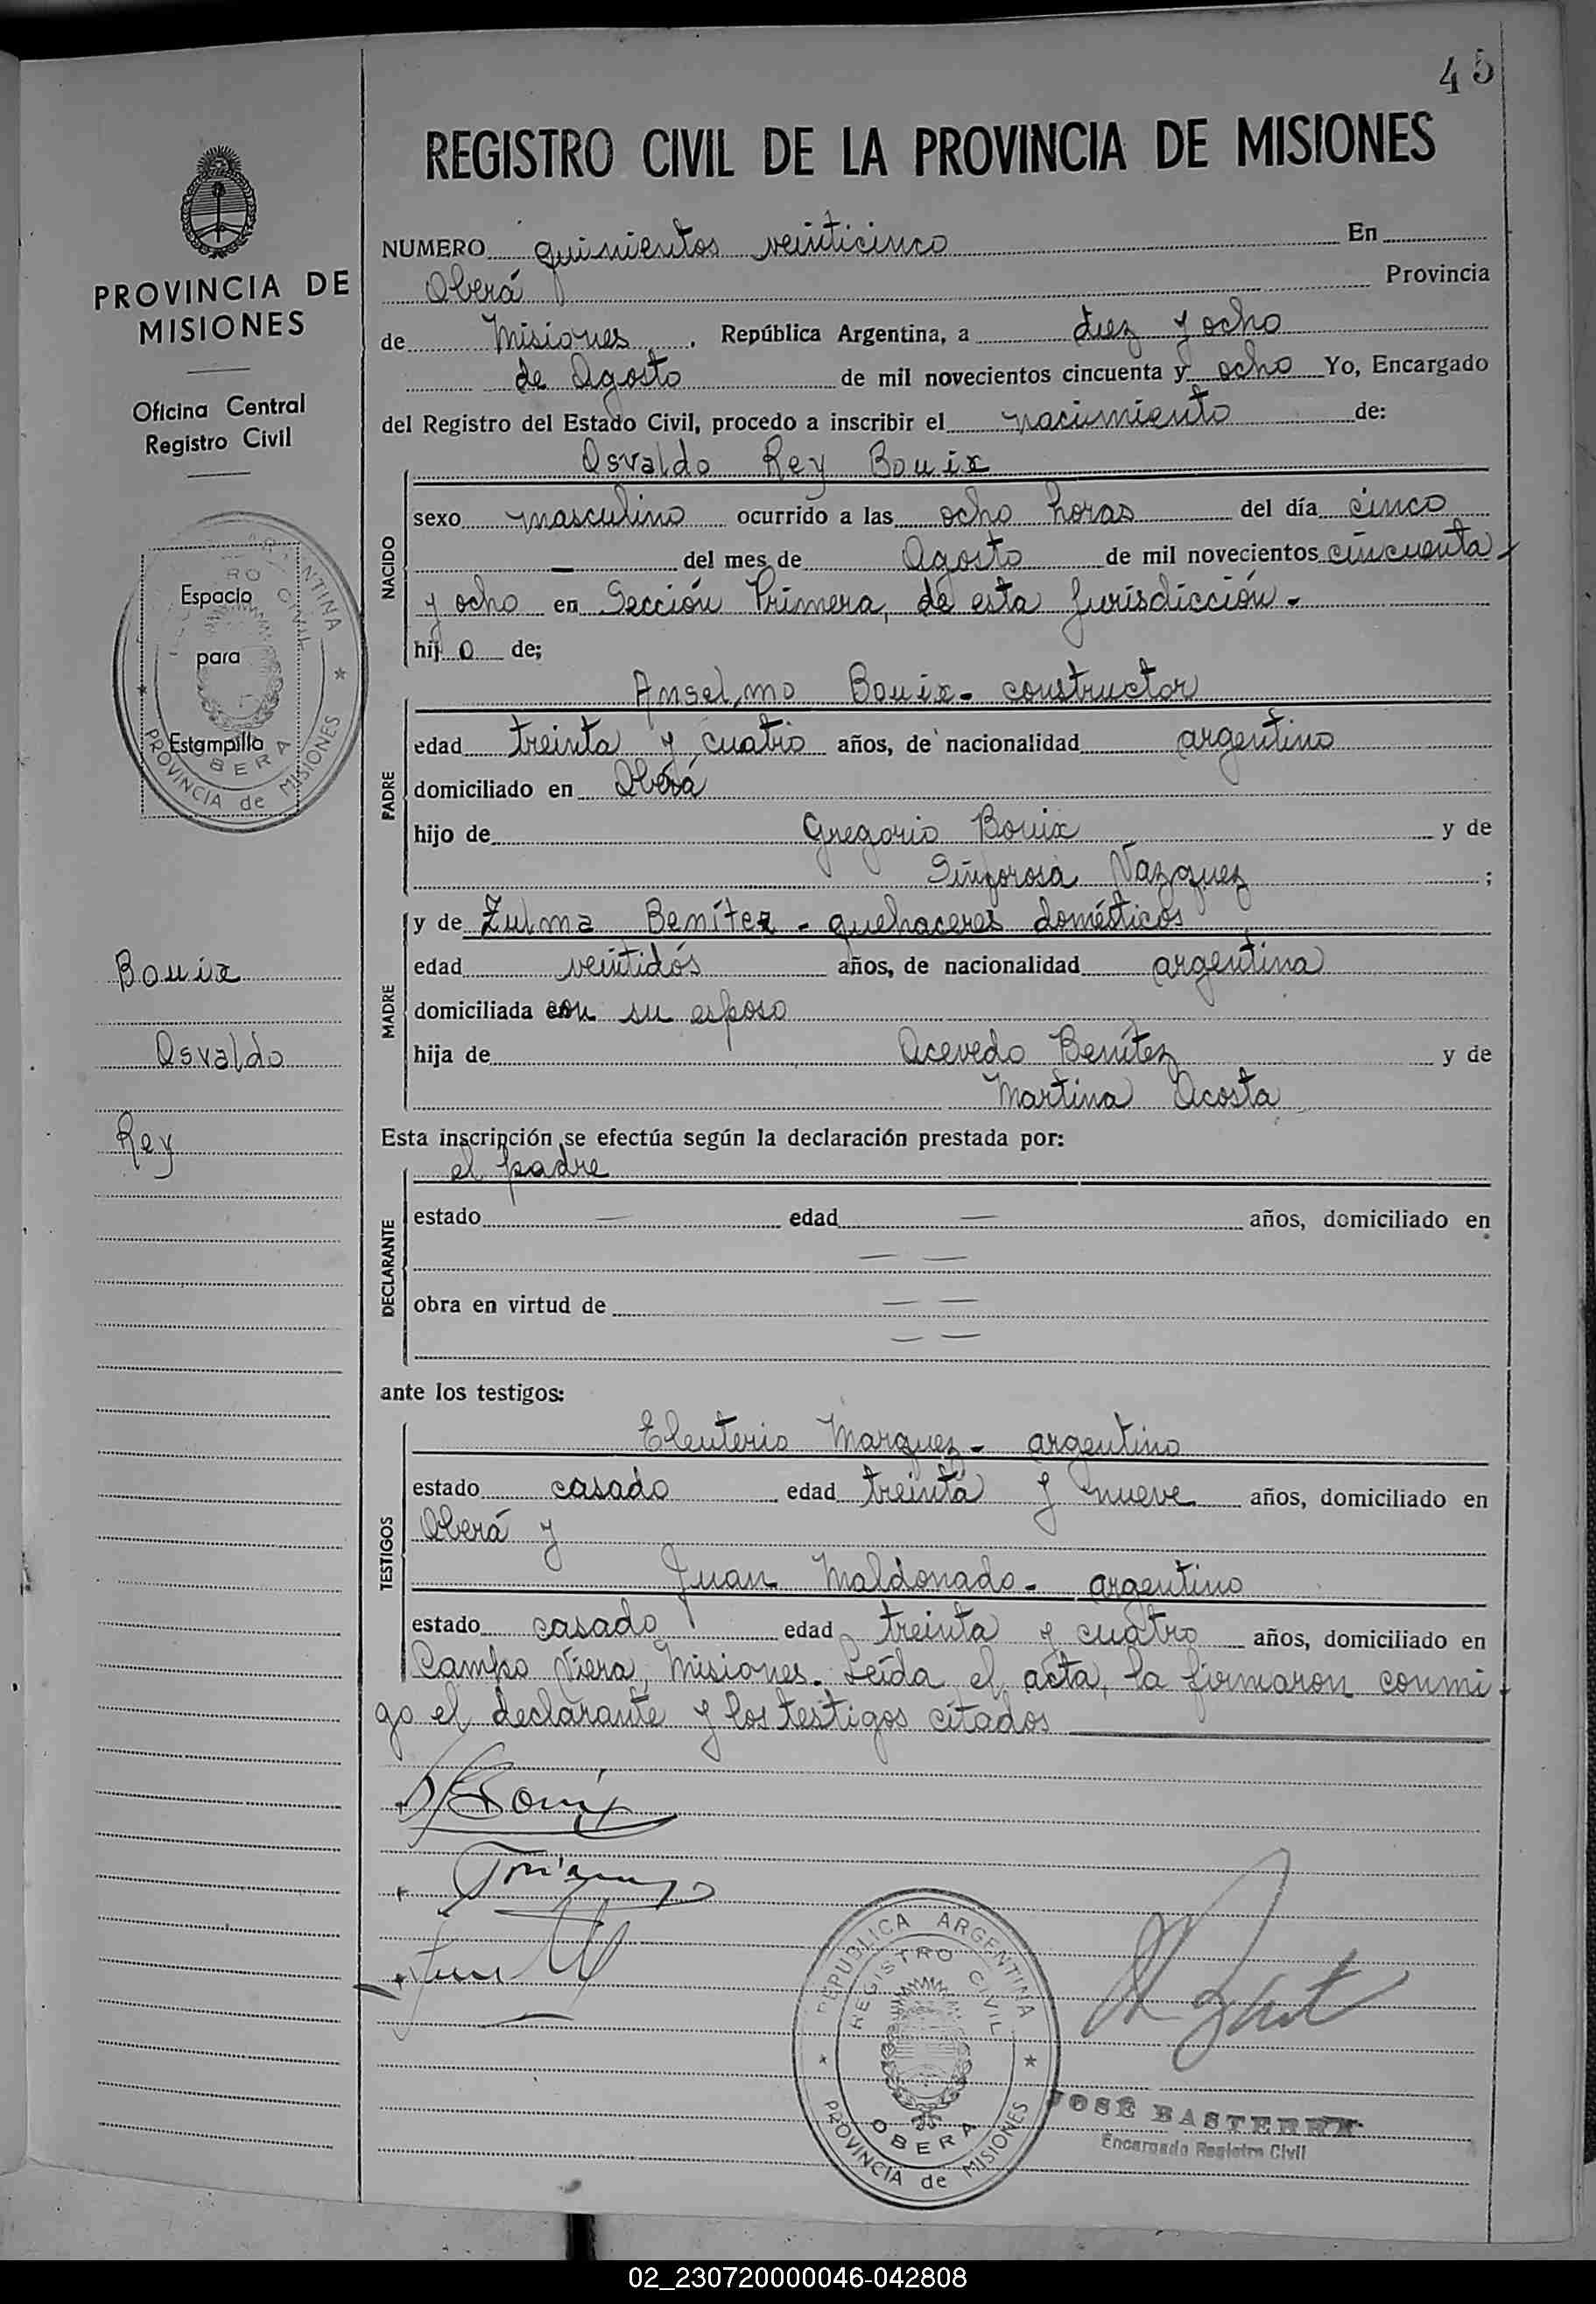 45
REGISTRO CIVIL DE LA PROVINCIA DE MISIONES
PROVINCIA DE
MISIONES
Oficina Central
Registro Civil
Espacio
para
Estampilla
OBERA
PROVINCIA de MISIONES
Bouix
Osvaldo
Rey
NUMERO quinientos veinticinco En
Oberá Provincia
de Misiones, República Argentina, a diez y ocho
de Agosto de mil novecientos cincuenta y ocho Yo, Encargado
del Registro del Estado Civil, procedo a inscribir el nacimiento de:
NACIDO
Osvaldo Rey Bouix
sexo masculino ocurrido a las ocho horas del día cinco
— del mes de Agosto de mil novecientos cincuenta
y ocho en Sección Primera, de esta Jurisdicción.-
hijo de;
PADRE
Anselmo Bouix - constructor
edad treinta y cuatro años, de nacionalidad argentino
domiciliado en Oberá
hijo de Gregorio Bouix y de
Vazquez ;
MADRE
y de Zulma Benítez - quehaceres domésticos
edad veintidós años, de nacionalidad argentina
domiciliada con su esposo
hija de Acevedo Benítez y de
Martina Acosta
Esta inscripción se efectúa según la declaración prestada por:
DECLARANTE
el padre
estado — edad — años, domiciliado en
— —
obra en virtud de — —
— —
ante los testigos:
TESTIGOS
Eleuterio Marquez - argentino
estado casado edad treinta y nueve años, domiciliado en
Oberá y
Juan Maldonado - argentino
estado casado edad treinta y cuatro años, domiciliado en
Campo Viera, Misiones. Leída el acta, la firmaron conmi
go el declarante y los testigos citados
Bouix
REPUBLICA ARGENTINA
REGISTRO CIVIL
OBERA
PROVINCIA de MISIONES
JOSÉ BASTERRA
Encargado Registro Civil
02_230720000046-042808